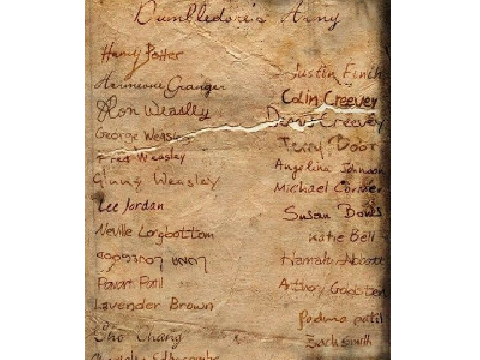 Dumbledore's Army
Harry Potter
Hermione Granger
Ron Weasly
George Weasly
Fred Weasley
Ginny Weasley
Lee Jordan
Neville Longbottom
Parati Patil
Lavender Brown
Cho Chang
Justin Finch
Colin Creevey
Dennis Creevey
Terry Boot
Angelina Johnson
Michael Corner
Susan Bones
Katie Bell
Hannah Abbott
Anthony Goldstein
Padma patil
Zach smith